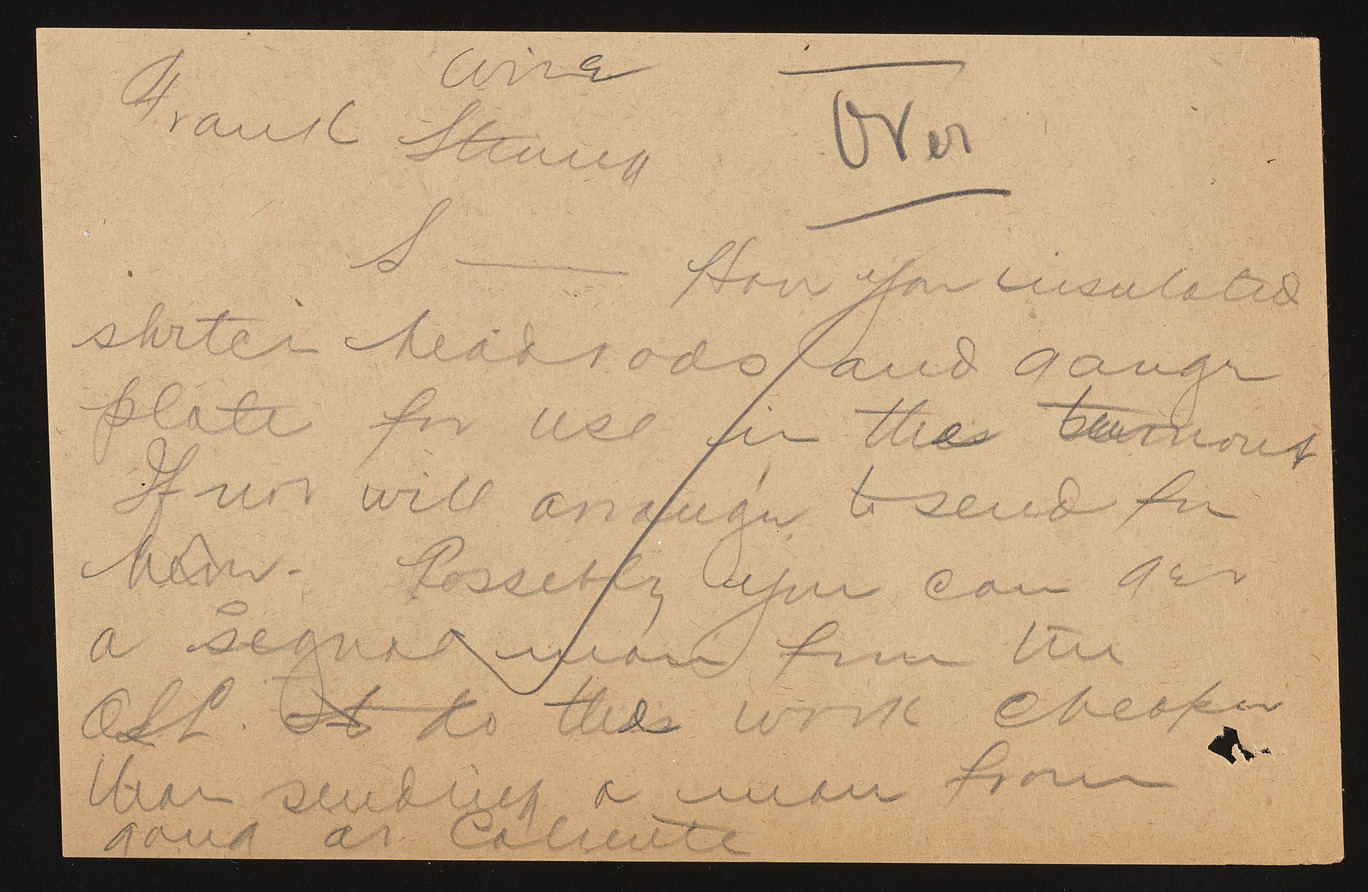 Wire
Frank Strong
Over
S —— Have you insulated
switch headrods and gauge
plate for use in this turnout
If not will arrange to send for
them. Possibly you can get
a signal man from the
OSL. to do this work cheaper
than sending a man from
gang at Caliente